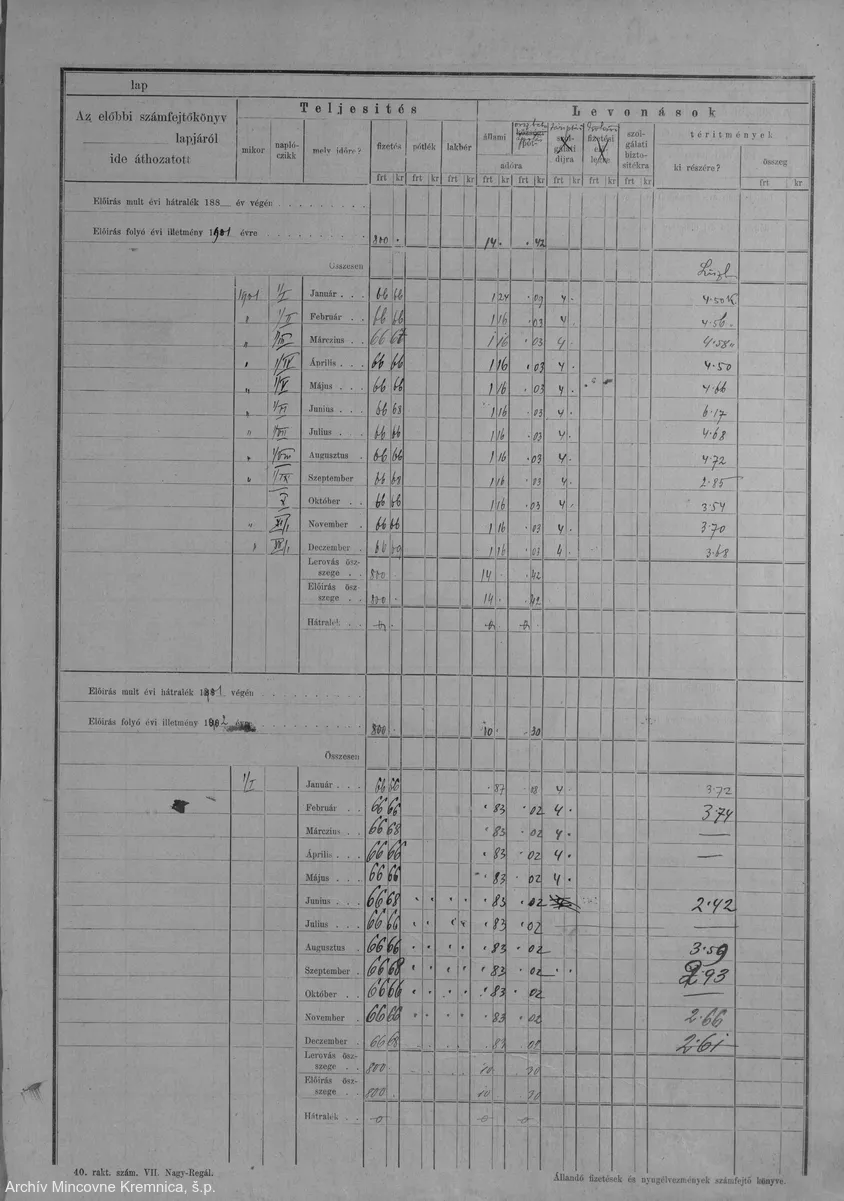 lap
Az előbbi számfejtőkönyv
lapjáról
ide áthozatott
Teljesités
Levonások
mikor
napló-czikk
mely időre?
fizetés
pótlék
lakbér
állami
adóra
szol-gálati dijra
fizetési
szol-gálati bizto-sitékra
téritmények
ki részére?
összeg
frt kr frt kr frt kr frt kr frt kr frt kr frt kr frt kr
Előirás mult évi hátralék 188 év végén
Előirás folyó évi illetmény 1901 évre 800 · 14 · · 42
Összesen
1901 1/I Január 66 66 1 24 · 09 4 · 4·50
" 1/II Február 66 66 1 16 · 03 4 · 4·56
" 1/III Márczius 66 67 1 16 · 03 4 · 4·58
" 1/IV Április 66 66 1 16 · 03 4 · 4·50
" 1/V Május 66 66 1 16 · 03 4 · 4·66
" 1/VI Junius 66 68 1 16 · 03 4 · 6·17
" 1/VII Julius 66 66 1 16 · 03 4 · 4·68
" 1/VIII Augusztus 66 66 1 16 · 03 4 · 4·72
" 1/IX Szeptember 66 68 1 16 · 03 4 · 2·85
X Október 66 66 1 16 · 03 4 · 3·54
" XI/1 November 66 66 1 16 · 03 4 · 3·70
" XII/1 Deczember 1 16 · 03 4 · 3·68
Lerovás ösz-
szege 800 14 · · 42
Előirás ösz-
szege 800 · 14 · · 42
Hátralék
Előirás mult évi hátralék 1901 végén
Előirás folyó évi illetmény 1902 évre 800 · 10 · · 30
Összesen
1/I Január 66 66 · 87 · 08 4 · 3·72
Február 66 66 · 83 · 02 4 · 3·74
Márczius 66 68 · 83 · 02 4 · —
Április 66 66 · 83 · 02 4 · —
Május 66 66 · 83 · 02 4 ·
Junius 66 68 · 83 · 02 2·42
Julius 66 66 · 83 · 02 —
Augusztus 66 66 · 83 · 02 3·59
Szeptember 66 68 · 83 · 02 2·93
Október 66 66 · 83 · 02 —
November 66 66 · 83 · 02 2·66
Deczember 66 68 · 83 · 08 2·61
Lerovás ösz-
szege 800 10
Előirás ösz-
szege 800 10
Hátralék 0 0 0
40. rakt. szám. VII. Nagy-Regál.
Állandó fizetések és nyugélvezmények számfejtő könyve.
Archív Mincovne Kremnica, š.p.